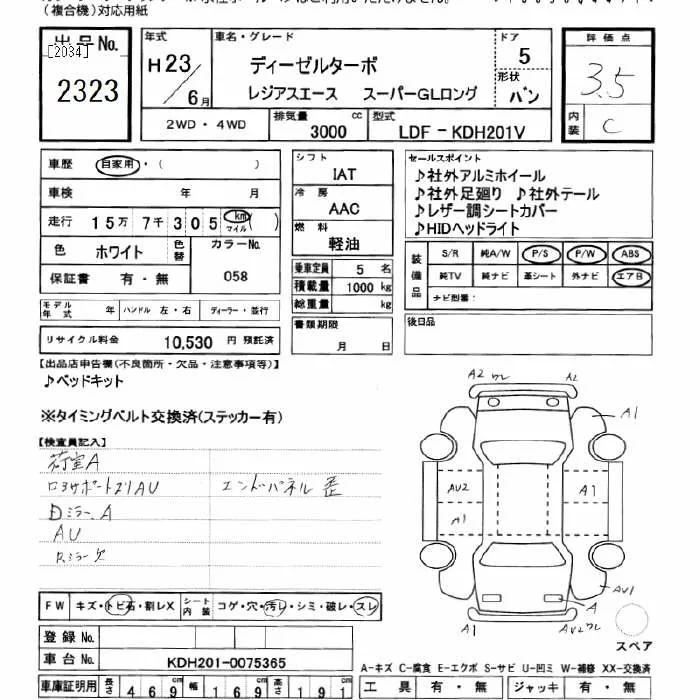 (複合機)対応用紙
出品No.
[2034]
2323
年式
H23/6月
車名・グレード
ディーゼルターボ
レジアスエース スーパーGLロング
ドア
5
形状
バン
評価点
3.5
内装
C
2WD・4WD
排気量 3000 cc
型式 LDF-KDH201V
車歴 自家用・( )
車検 年 月
走行 15万 7千 305 km マイル ( )
色 ホワイト 色替 カラーNo.
保証書 有・無 058
モデル年式 年 ハンドル 左・右 ディーラー・並行
リサイクル料金 10,530 円 預託済
シフト
IAT
冷房
AAC
燃料
軽油
乗車定員 5 名
積載量 1000 kg
総重量 kg
書類期限
月 日
セールスポイント
♪社外アルミホイール
♪社外足廻り ♪社外テール
♪レザー調シートカバー
♪HIDヘッドライト
装備品
S/R 純A/W P/S P/W ABS
純TV 純ナビ 革シート 外ナビ エアB
ナビ型番:
後日品
【出品店申告欄(不良箇所・欠品・注意事項等)】
♪ベッドキット
※タイミングベルト交換済(ステッカー有)
【検査員記入】
荷室A
ロアサポートズリAU エンドパネル 歪
Dミラー A
AU
Rミラー
A2 ワレ A2
A1
AU2 A1
A1
AU1
A
A1 AU2ワレ
スペア
FW キズ・トビ石・割レX シート内装 コゲ・穴・汚レ・シミ・破レ・スレ
登録No.
車台No. KDH201-0075365
車庫証明用 長さ 469 cm 幅 169 cm 高さ 191 cm
A-キズ C-腐食 E-エクボ S-サビ U-凹ミ W-補修 XX-交換済
工具 有・無 ジャッキ 有・無